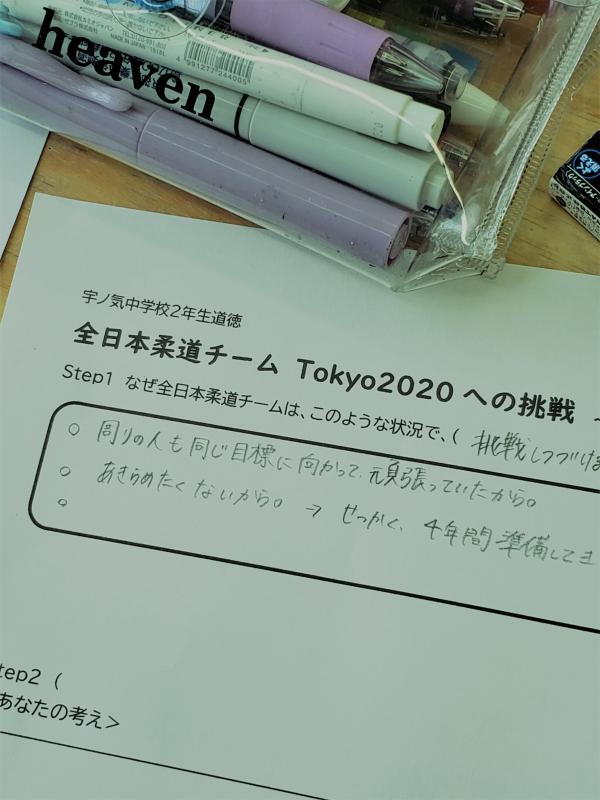 heaven
MADE IN JAPAN
4 991277 244005
宇ノ気中学校2年生道徳
全日本柔道チーム Tokyo2020 への挑戦 ～
Step1 なぜ全日本柔道チームは、このような状況で、( 挑戦しつづけ
○ 周りの人も同じ目標に向かって、頑張っていたから。
○ あきらめたくないから。 → せっかく、4年間準備してき
○
tep2 (
あなたの考え＞